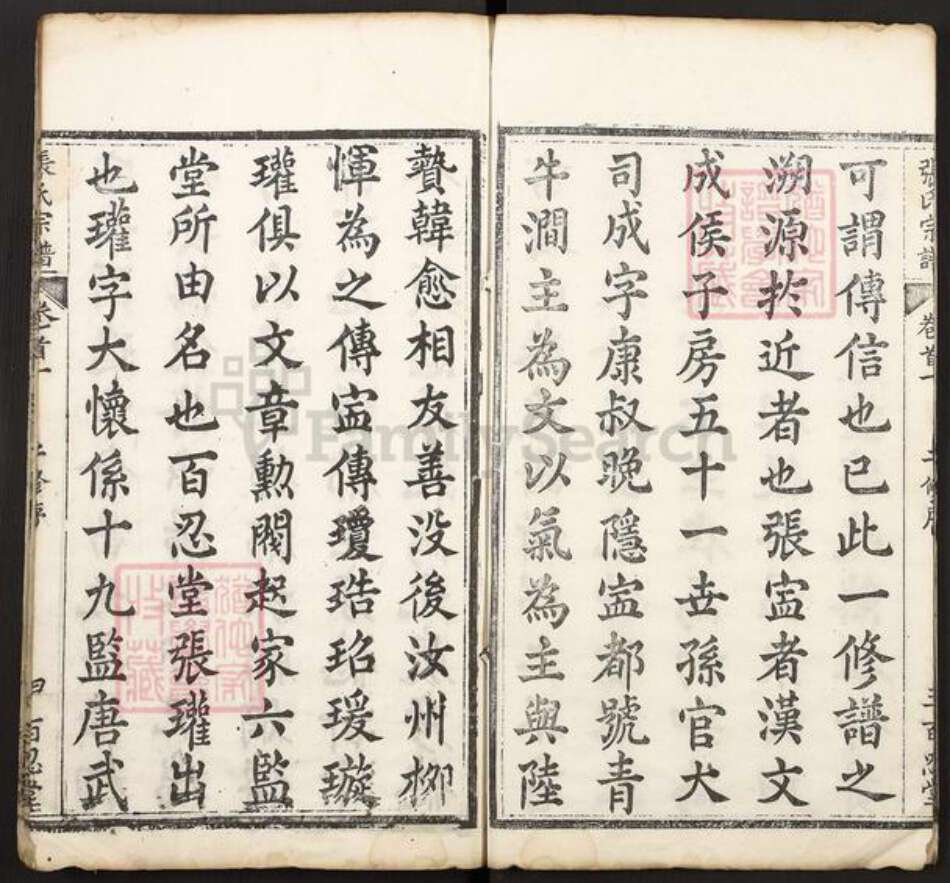 張氏宗譜 卷首一 二修序 百忍堂
可謂傳信也已此一修譜之
溯源於近者也張寍者漢文
成侯子房五十一世孫官大
司成字康叔晚隱寍都號青
牛澗主為文以氣為主與陸
贄韓愈相友善沒後汝州栁
惲為之傳寍傳瓊珤玿瑗璇
瓘俱以文章勳閥起家六監
堂所由名也百忍堂張瓘出
也瓘字大懷係十九監唐武
張氏宗譜 卷首一 二修序 百忍堂
FamilySearch